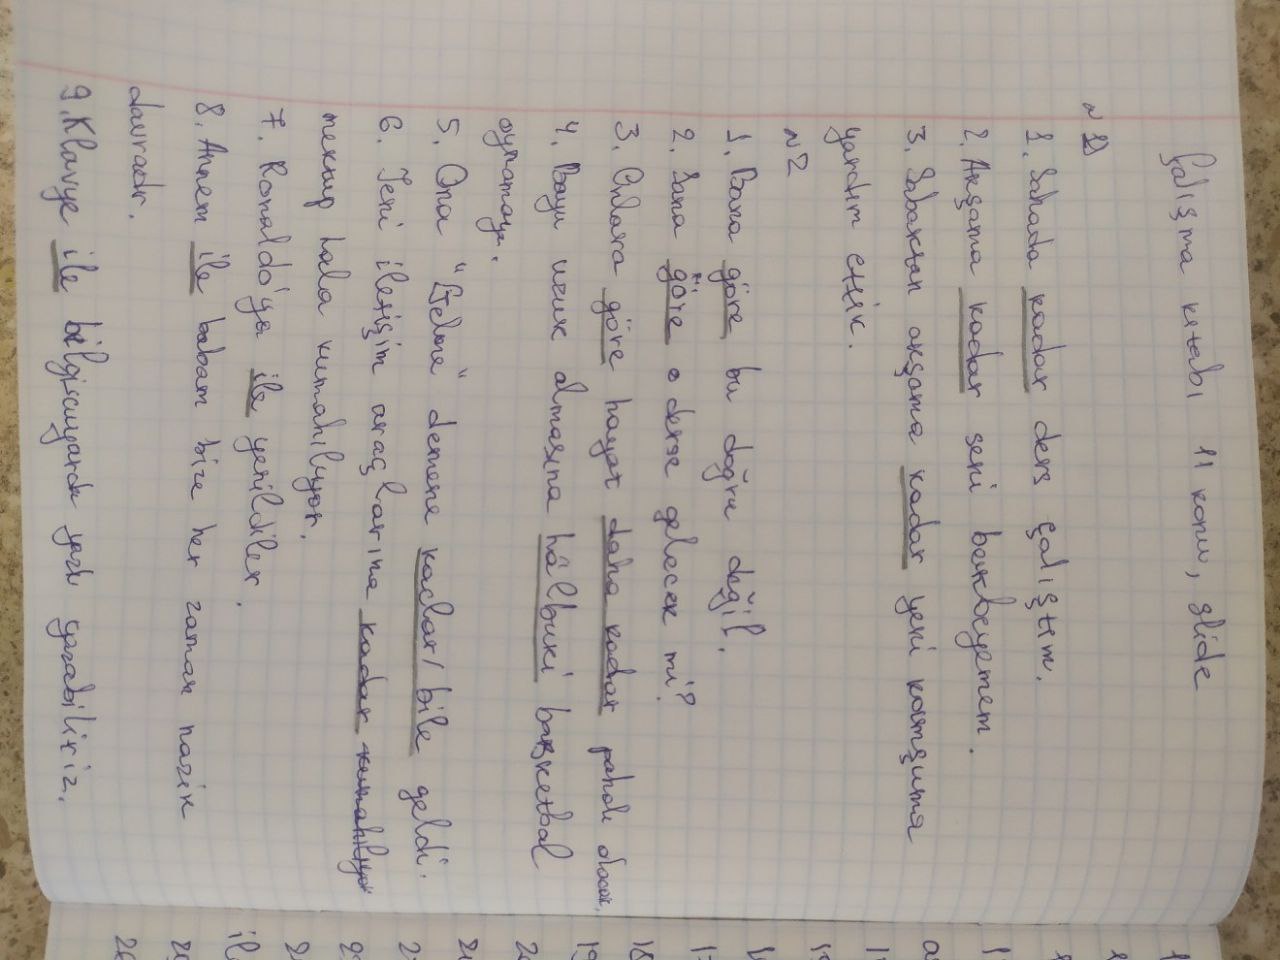 Çalışma kitabı 11 konu, slide
№ 1
1. Sahada kadar ders çalıştım.
2. Akşama kadar seni bekleyemem.
3. Sabahtan akşama kadar yeni komşuma
yardım ettik.
№2
1. Bana göre bu doğru değil.
2. Sana göre o derse gelecek mi?
3. Onlara göre hayat daha kadar pahalı olacak.
4. Boyu uzun olmasına hâlbuki basketbal
oynamayı.
5. Ona "Gelme" demene kadar/bile geldi.
6. Yeni iletişim araçlarına kadar
mektup hala kullanılıyor.
7. Ronaldo'ya ile yenildiler.
8. Annem ile babam bize her zaman nazik
davranır.
9. Klavye ile bilgisayarda yazı yazabiliriz.
18
19
20
21
22
23
24
25
26